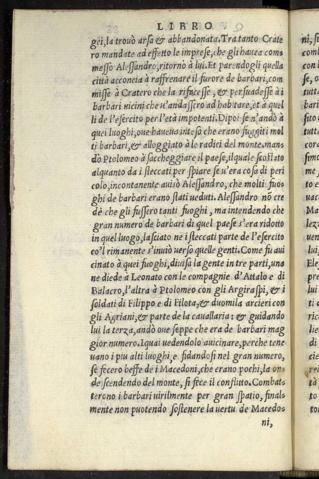 LIBRO
gei, la trouò arsa & abbandonata. Tra tanto Crate
ro mandate ad effetto le imprese, che gli hauea com
messo Alessandro, ritornò à lui. Et parẽdogli quella
città acconcia à raffrenare il furore de barbari, com
misse à Cratero che la rifacesse, & persuadesse à i
barbari uicini che u'andassero ad habitare, et à quel
li de l'esercito per l'età impotenti. Dipoi se n'andò à
quei luoghi, oue haueua inteso che erano fuggiti mol
ti barbari, & alloggiato à le radici del monte, man
dò Ptolomeo à saccheggiare il paese, ilquale scostato
alquanto da i steccati per spiare se u'era cosa di peri
colo, incontanente auisò Alessandro, che molti fuo
ghi de barbari erano stati ueduti. Alessandro nõ cre
dè che gli fussero tanti fuoghi, ma intendendo che
gran numero de barbari di quel paese s'era ridotto
in quel luogo, lasciato ne i steccati parte de l'esercito
co'l rimanente s'inuiò uerso quelle genti. Come fu aui
cinato à quei fuoghi, diuisa la gente in tre parti, una
ne diede a Leonato con le compagnie d'Attalo e di
Balacro, l'altra à Ptolomeo con gli Argiraspi, & i
soldati di Filippo e di Filota, & duomila arcieri con
gli Agriani, & parte de la cauallaria: & guidando
lui la terza, andò oue seppe che era de barbari mag
gior numero. I quai uedendolo auicinare, perche tene
uano i piu alti luoghi, e fidandosi nel gran numero,
se fecero beffe de i Macedoni, che erano pochi, la on
de scendendo del monte, si fece il conflitto. Combat
terono i barbari uirilmente per gran spatio, final
mente non puotendo sostenere la uertu de Macedo
ni,